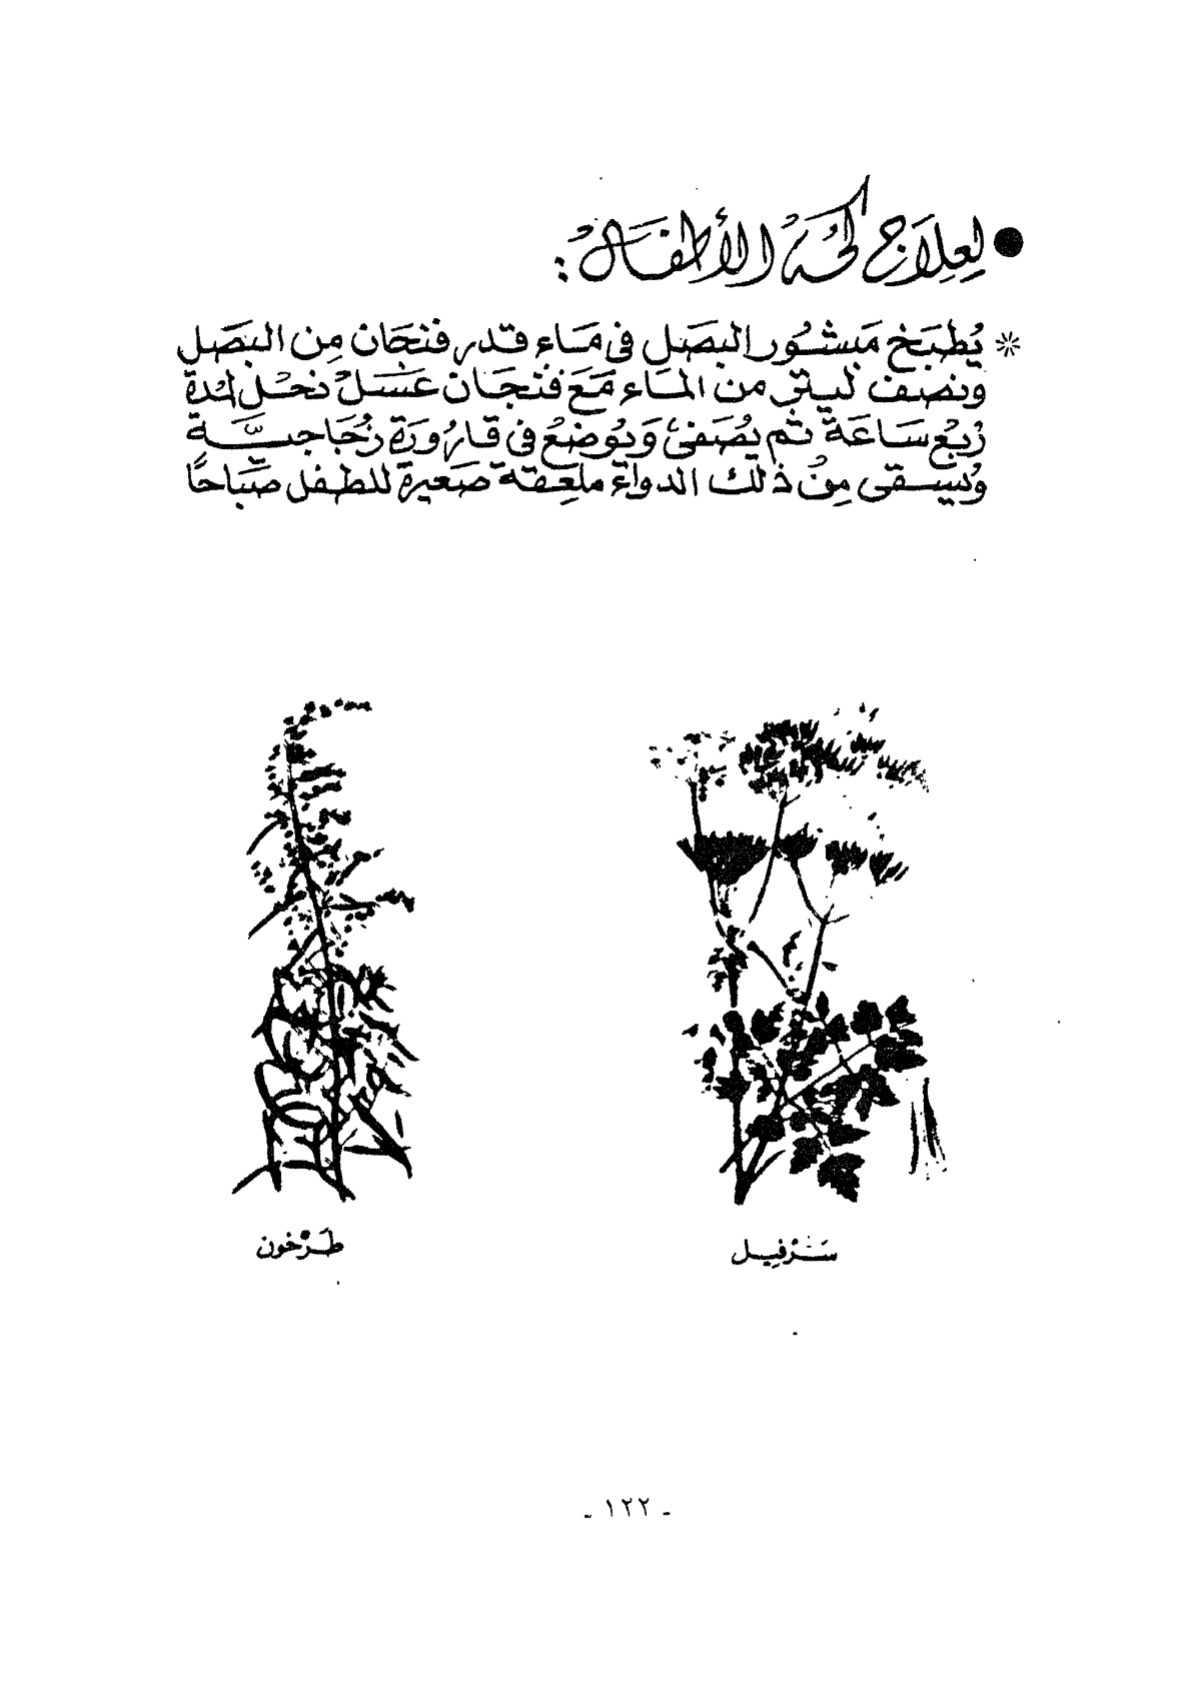 ● لِعِلَاج كحَّة الأطفَال :
* يُطبَخ مَبشُور البصَل فى مَاء قدر فنجَان مِن البَصَل
ونصف ليتر من الماء مَعَ فنجَان عَسَل نحْل لمُدة
رُبع سَاعَة ثم يصُفى وَيُوضعُ فى قارُورَة زُجَاجيَّة
ويُسقى مِنْ ذلك الدواء ملعِقة صَغيرة للطفل صَبَاحًا
سَرْفِيل
طَرْخون
- ١٢٢ -